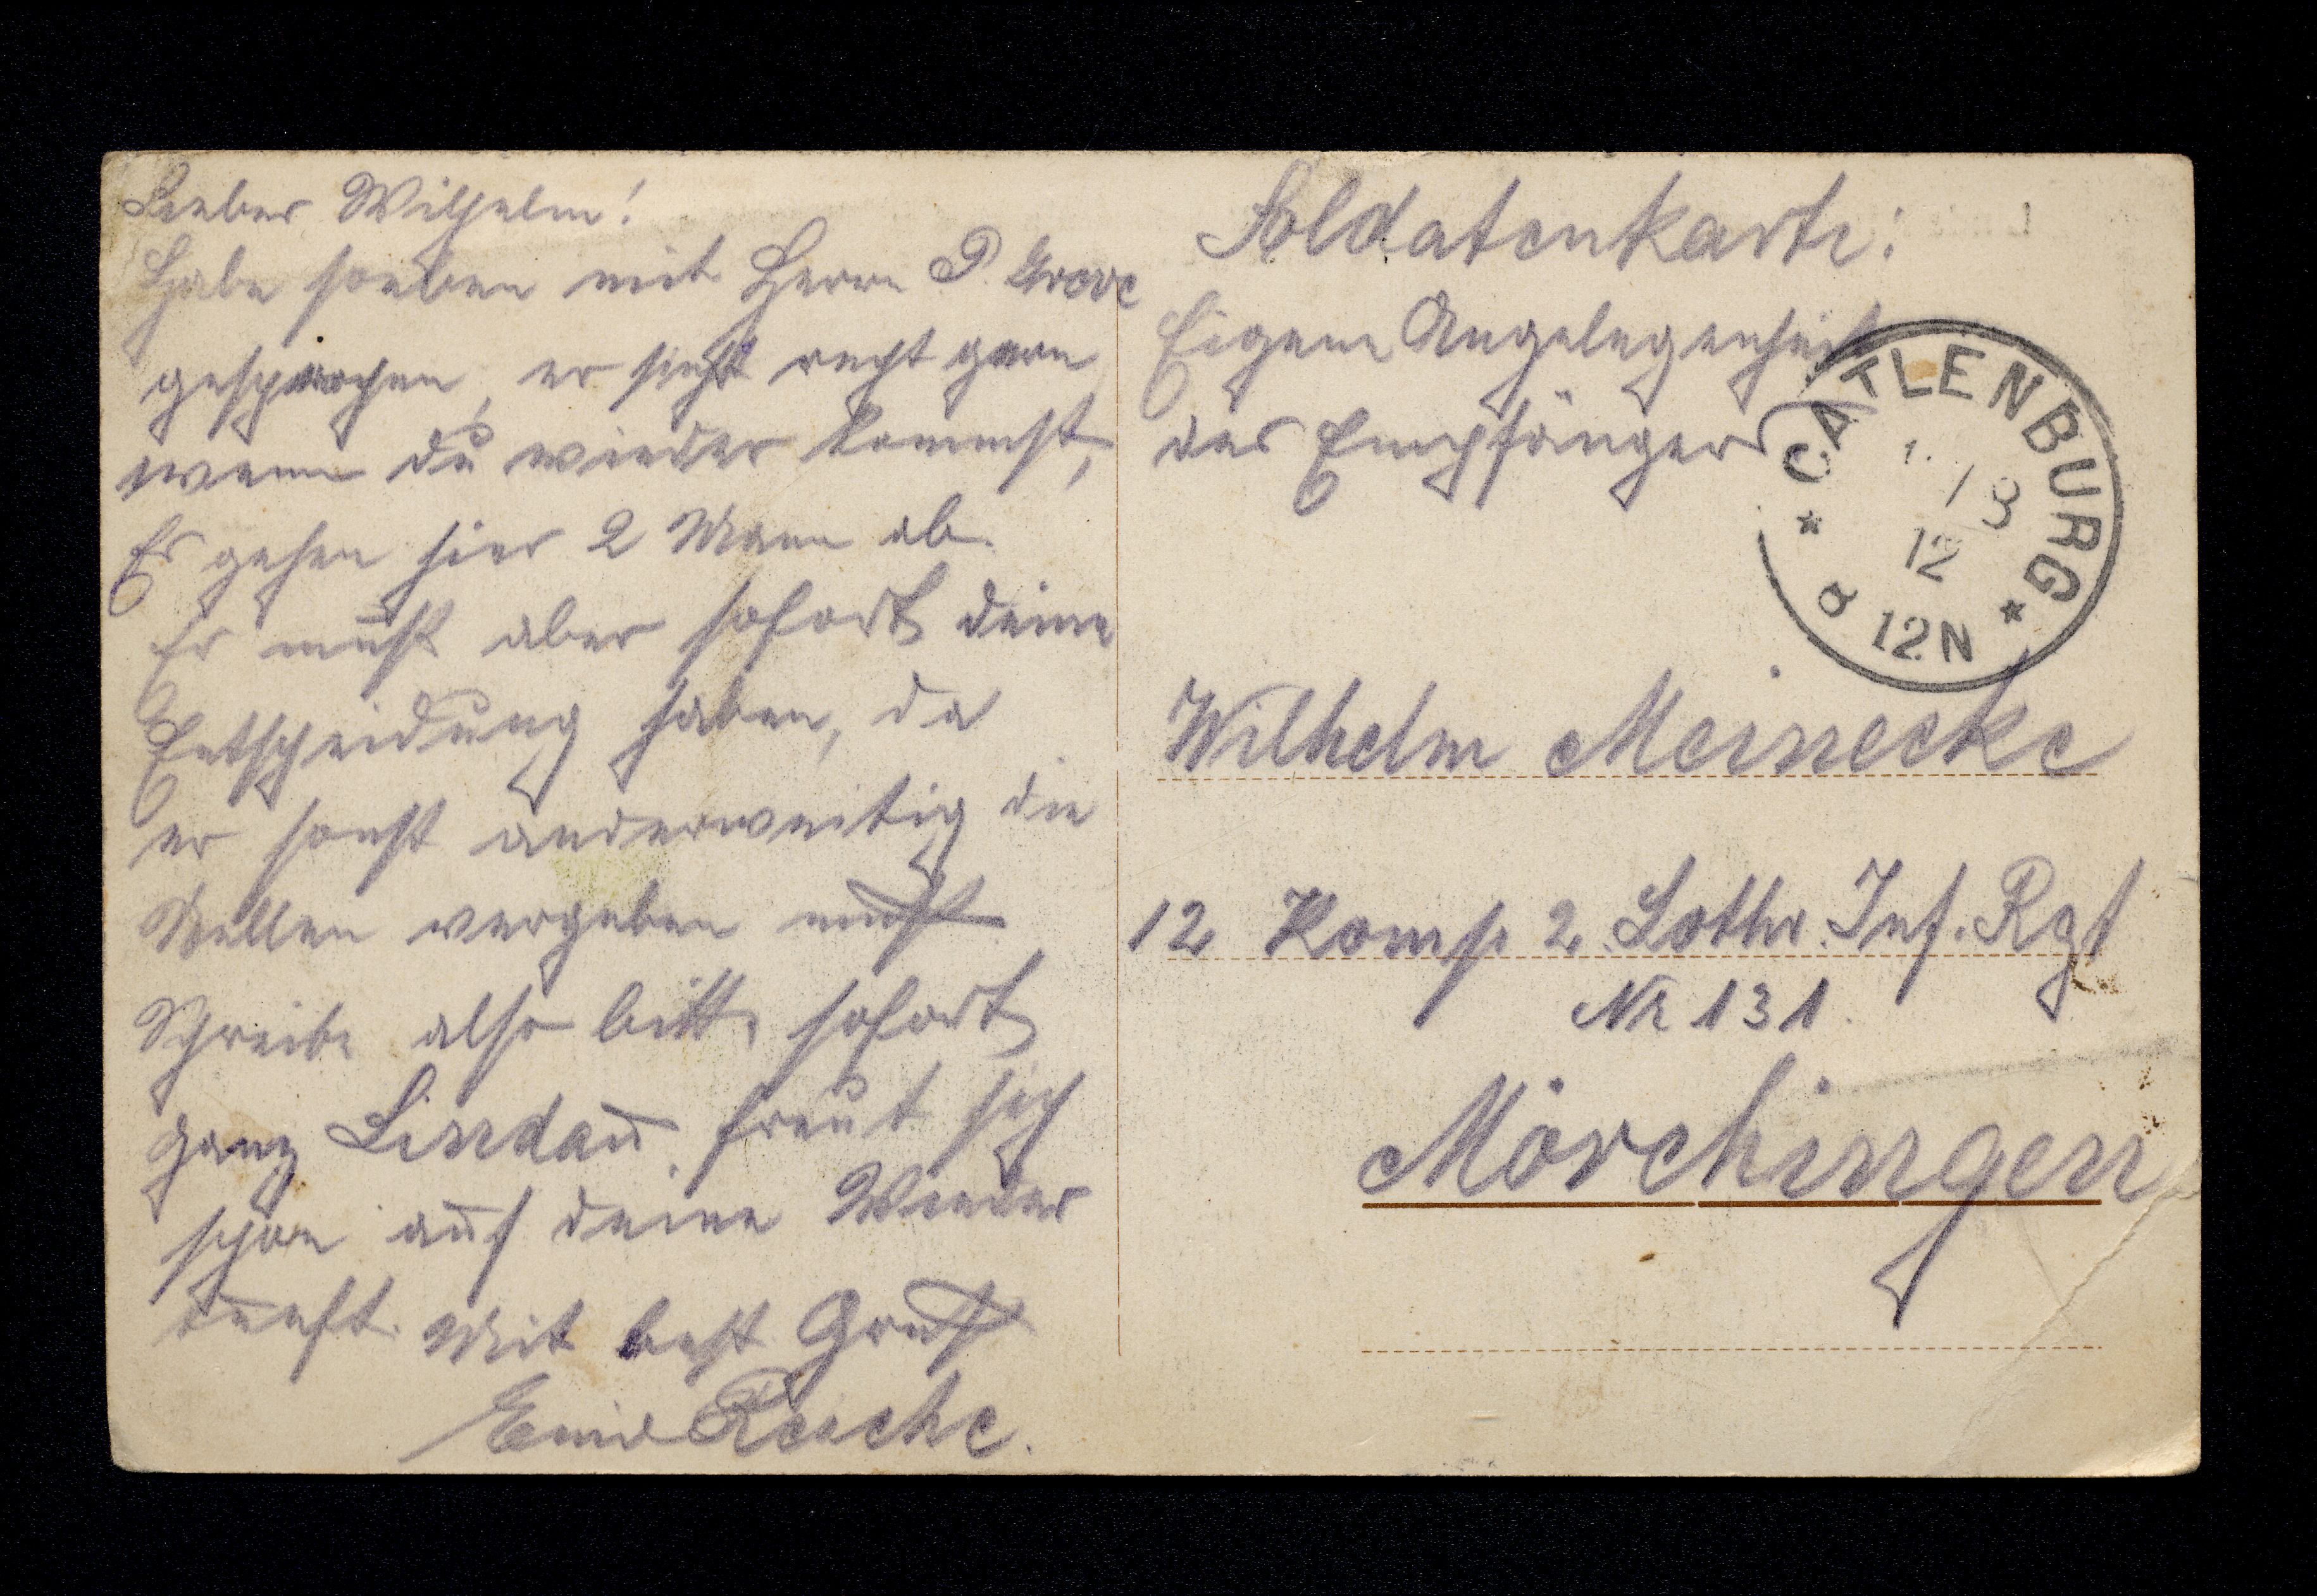 Lieber Wilhelm!
Habe soeben mit Herrn P. Grove
gesprochen, er sieht recht gern
wenn du wieder kommst,
Es gehen hier 2 Mann ab.
Er muß aber sofort deine
Entscheidung haben, da
er sonst anderweitig die
Stellen vergeben muß
Schreibe also bitte sofort
ganz Lindau freut sich
schon auf deine Wieder
kunft. Mit best Gruß
Emil Resche.
Soldatenkarte:
Eigene Angelegenheit
des Empfängers
CATLENBURG
12
8 12N
Wilhelm Meinecke
12 Komp 2. Lothr. Inf. Rgt
Nr 131.
Mörchingen